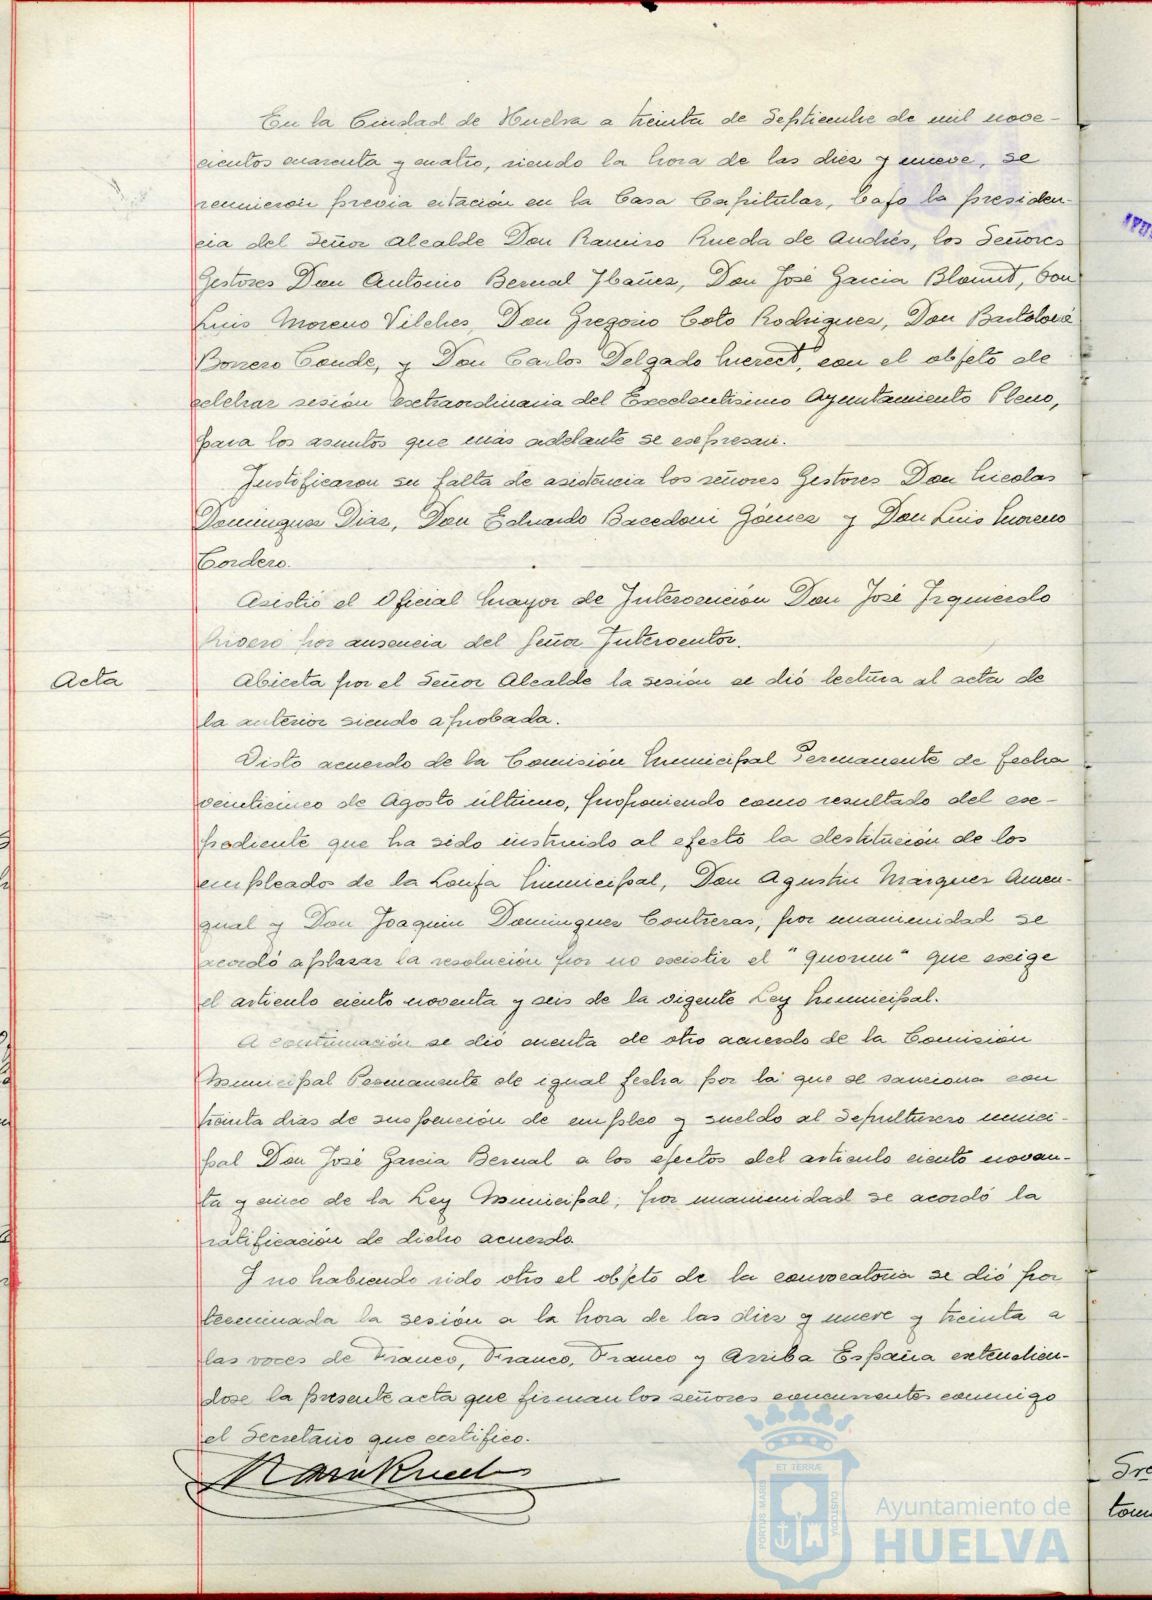 En la Ciudad de Huelva a treinta de Septiembre de mil nove-
cientos cuarenta y cuatro, siendo la hora de las diez y nueve, se
reunieron previa citación en la Casa Capitular, bajo la presiden-
cia del Señor Alcalde Don Ramiro Rueda de Andrés, los Señores
Gestores Don Antonio Bernal Ybañez, Don José Garcia Blount, Don
Luis Moreno Vilches, Don Gregorio Coto Rodriguez, Don Bartolomé
Borrero Conde, y Don Carlos Delgado con el objeto de
celebrar sesión extraordinaria del Excelentisimo Ayuntamiento Pleno,
para los asuntos que más adelante se expresan.
Justificaron su falta de asistencia los señores Gestores Don Nicolas
Dominguez Diaz, Don Eduardo Bacedoni Gómez y Don Luis Moreno
Cordero.
Asistió el Oficial Mayor de Intervención Don José Izquierdo
Rivero por ausencia del Señor Interventor.
Acta
Abierta por el Señor Alcalde la sesión se dió lectura al acta de
la anterior siendo aprobada.
Visto acuerdo de la Comisión Municipal Permanente de fecha
veinticinco de Agosto último, proponiendo como resultado del ex-
pediente que ha sido instruido al efecto la destitución de los
empleados de la Lonja Municipal, Don Agustin Marquez Amen-
gual y Don Joaquin Dominguez Contreras, por unanimidad se
acordó aplazar la resolución por no existir el "quorum" que exige
el articulo ciento noventa y seis de la vigente Ley Municipal.
A continuación se dió cuenta de otro acuerdo de la Comisión
Municipal Permanente de igual fecha por la que se sanciona con
treinta dias de suspención de empleo y sueldo al Sepulturero munici-
pal Don José Garcia Bernal a los efectos del articulo ciento noven-
ta y cinco de la Ley Municipal, por unanimidad se acordó la
ratificación de dicho acuerdo.
Y no habiendo sido otro el objeto de la convocatoria se dió por
terminada la sesión a la hora de las diez y nueve y treinta a
las voces de Franco, Franco, Franco y Arriba España extendien-
dose la presente acta que firman los señores concurrentes conmigo
el Secretario que certifico.
PORTUS MARIS
ET TERRÆ
CUSTODIA
Ayuntamiento de
HUELVA